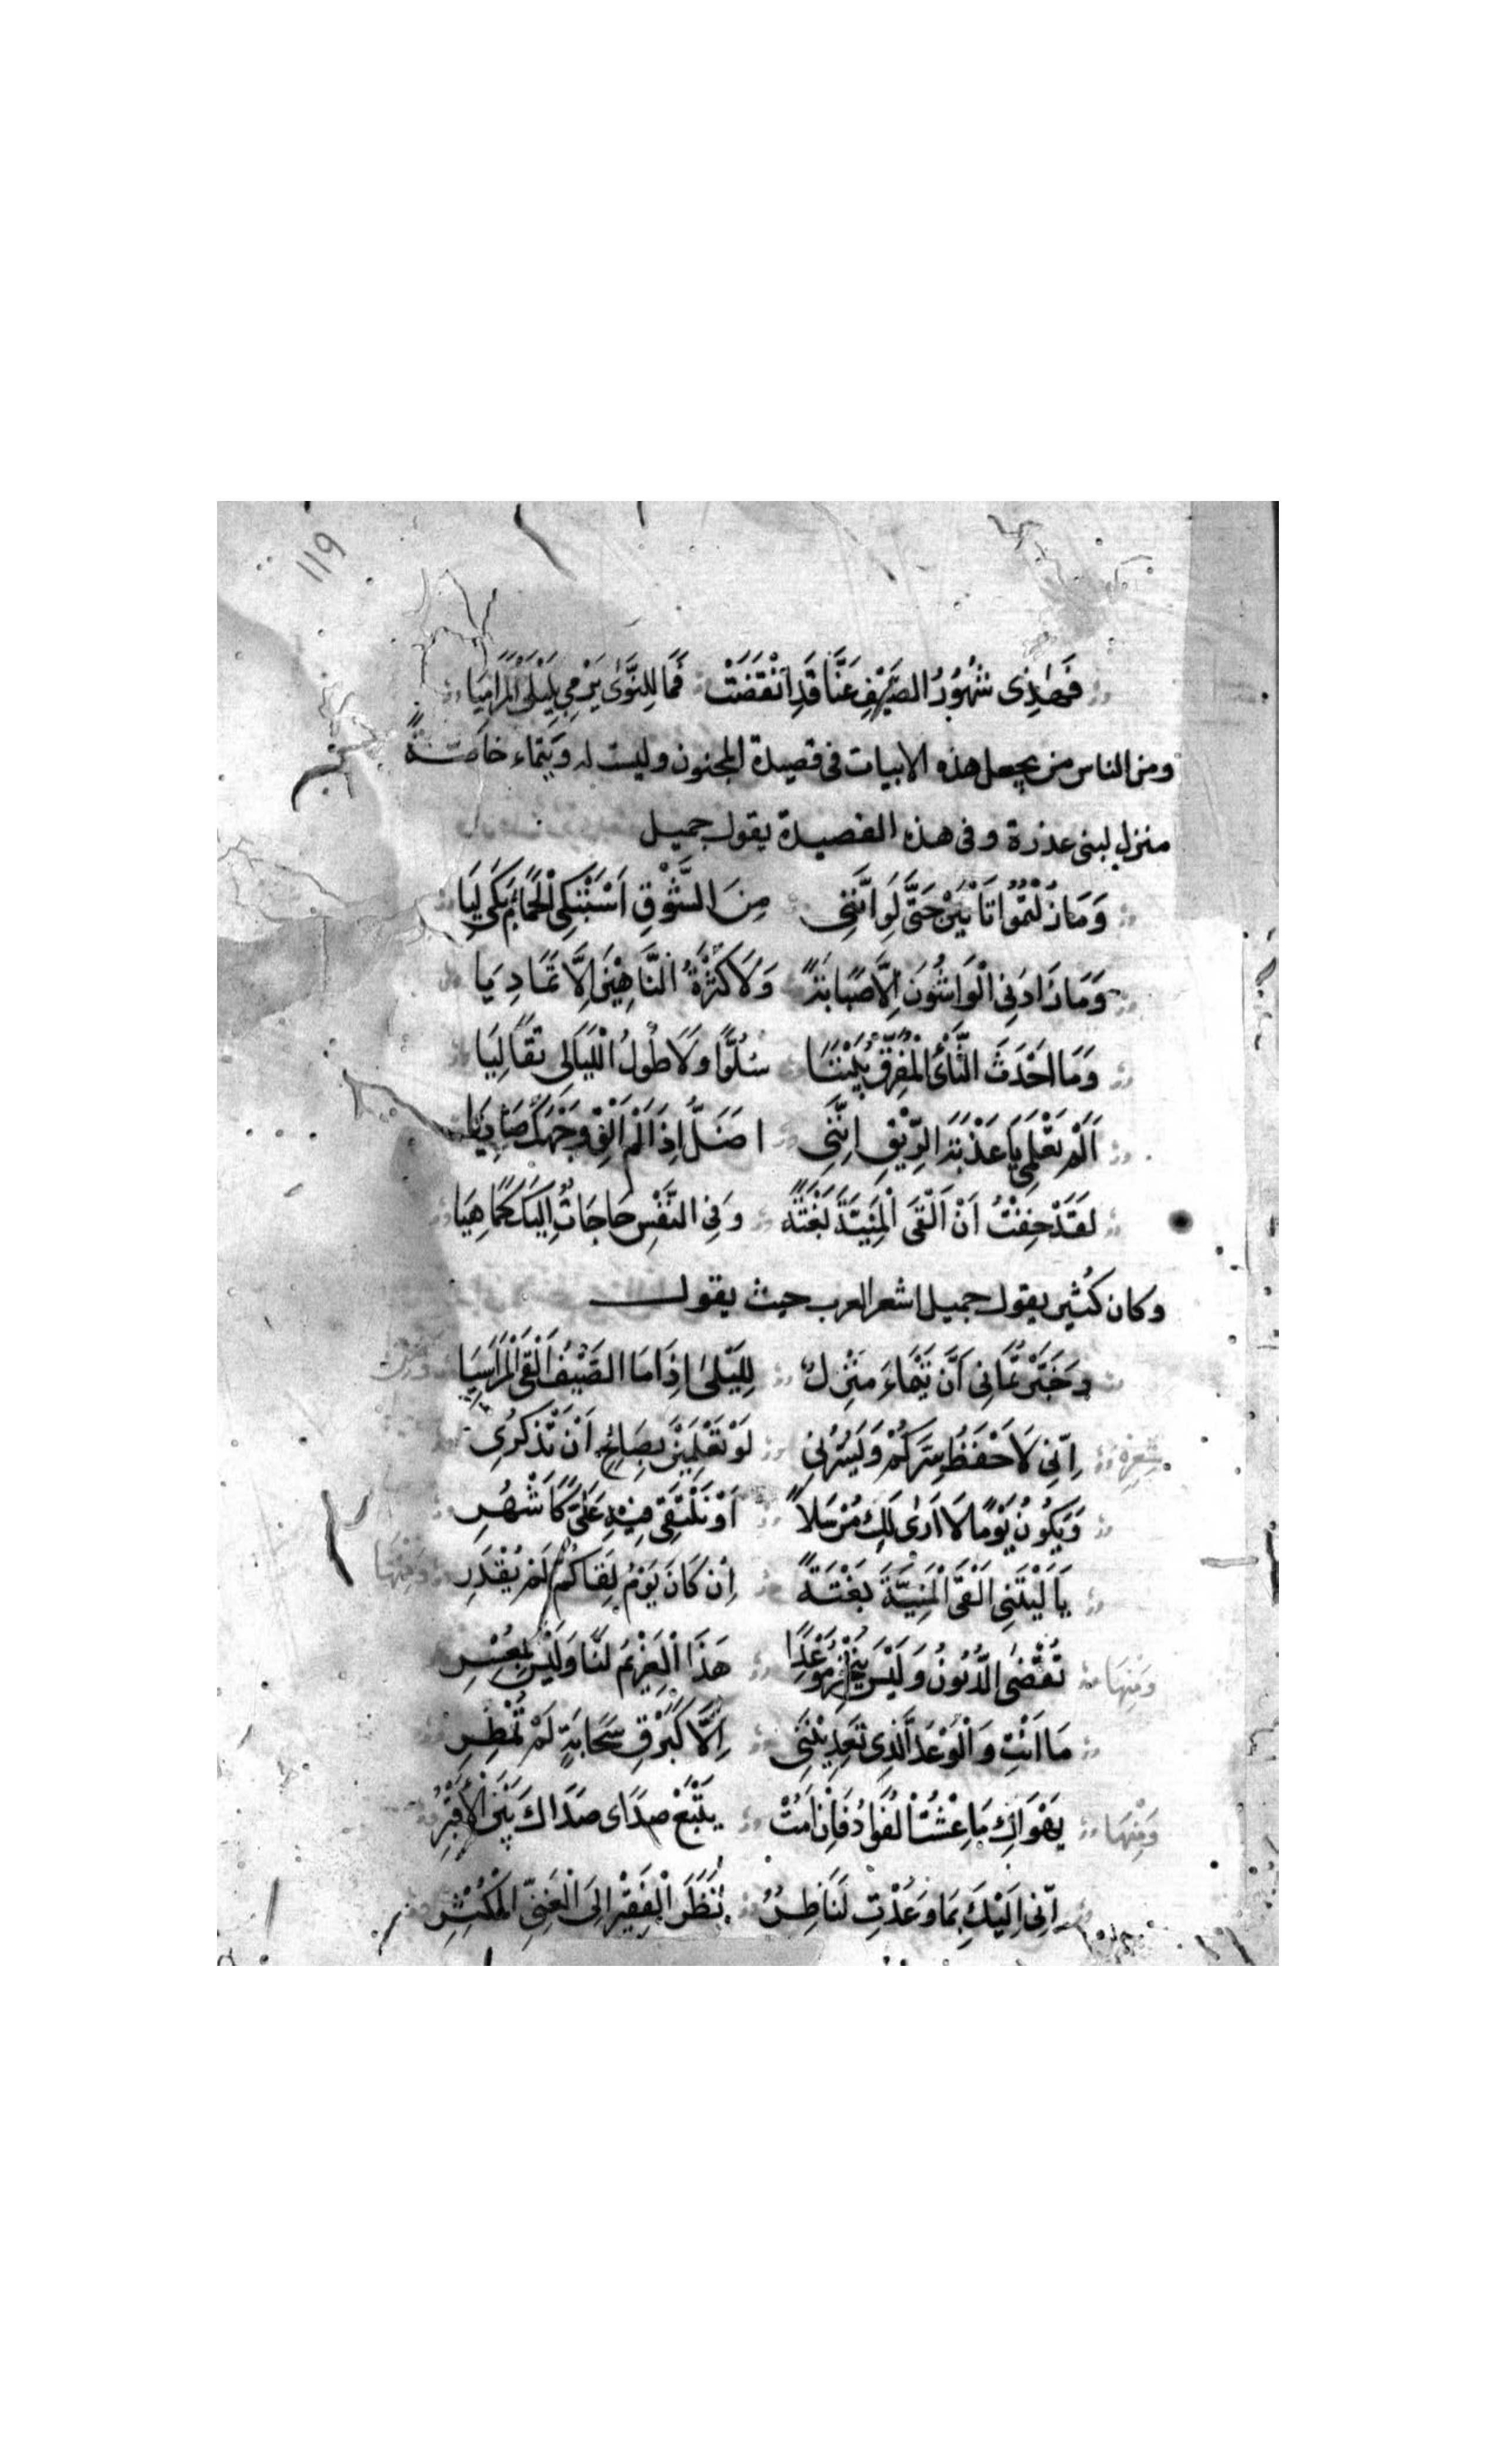 ١١٩
فَهٰذِى شُهُوْرُ الصَّيْفِ عَنَّا قَدِ انْقَضَتْ فَمَا لِلنَّوٰى يَرْمِى بِلَيْلَى الْمَرَامِيَا
ومن الناس من يجعل هذه الابيات فى قصيدة المجنون وليست له وتيماء خاصةً
منزل لبنى عذرة وفى هذه القصيدة يقول جميل
وَمَا زِلْتُمُوْا يَا بَثْنَ حَتَّى لَوِ انَّنِى مِنَ الشَّوْقِ اَسْتَبْكِى الْحَمَامَ بَكَى لِيَا
وَمَا زَادَنِى الْوَاشُونَ اِلَّا صَبَابَةً وَلَا كَثْرَةُ النَّاهِيْنَ اِلَّا تَمَادِيَا
وَمَا اَحْدَثَ النَّأْىُ الْمُفَرِّقُ بَيْنَنَا سُلُوًّا وَلَا طُولُ اللَّيَالِى تَقَالِيَا
اَلَمْ تَعْلَمِى يَا عَذْبَةَ الرِّيْقِ اِنَّنِى اَضَلُّ اِذَا لَمْ اَلْقَ وَجْهَكِ صَادِيَا
لَقَدْ خِفْتُ اَنْ اَلْقَى الْمَنِيَّةَ بَغْتَةً وَفِى النَّفْسِ حَاجَاتٌ اِلَيْكِ كَمَا هِيَا
وكان كُثير يقول جميل اشعر العرب حيث يقول
وَخَبَّرْتُمَانِى اَنَّ تَيْمَاءَ مَنْزِلٌ لِلَيْلىٰ اِذَا مَا الصَّيْفُ اَلْقَى الْمَرَاسِيَا
شِعْرِهِ اِنِّى لَاَحْفَظُ سِرَّكُمْ وَيَسُرُّنِى لَوْ تَعْلَمِيْنَ بِصَالِحٍ اَنْ تَذْكُرِى
وَيَكُونُ يَوْمًا لَا اَرٰى لَكِ مُرْسَلًا اَوْ نَلْتَقِى فِيْهِ عَلَىَّ كَاَشْهُرِ
يَا لَيْتَنِى اَلْقَى الْمَنِيَّةَ بَغْتَةً اِنْ كَانَ يَوْمُ لِقَاكُمُ لَمْ يُقْدَرِ وَمِنْهَا
وَمِنْهَا تُقْضَى الدُّيُونُ وَلَيْسَ يُنْجِزُ مَوْعِدًا هَذَا الْغَرِيْمُ لَنَا وَلَيْسَ بِمُعْسِرِ
مَا اَنْتِ وَالْوَعْدَ الَّذِى تَعِدِيْنَنِى اِلَّا كَبَرْقِ سَحَابَةٍ لَمْ تُمْطِرِ
وَمِنْهَا يَهْوَاكِ مَا عِشْتُ الْفُؤَادُ فَاِنْ اَمُتْ يَتْبَعْ صَدَاى صَدَاكِ بَيْنَ الْاَقْبُرِ
اِنِّى اِلَيْكِ بِمَا وَعَدْتِ لَنَاظِرٌ نَظَرَ الْفَقِيْرِ اِلَى الْغَنِىِّ الْمُكْثِرِ